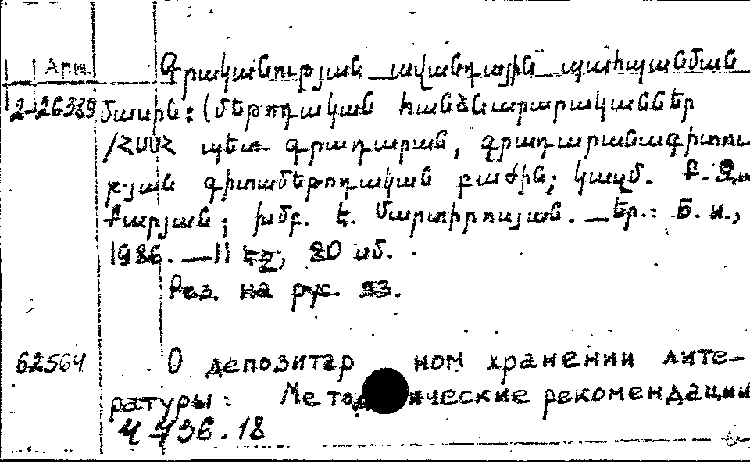 Арм.
Գրականության ավանդային պահպանման
2-26339 մասին: (Մեթոդական հանձնարարականներ
/ՀՍՍՀ պետ. գրադարան, գրադարանագիտու
թյան գիտամեթոդական բաժին; կազմ. Ք.
Քարյան; խմբ. Է. Մարտիրոսյան. — Եր.: Б. и.,
1986. — 11 էջ, 80 սմ.
Рез. на рус. яз.
62564 О депозитар ном хранении лите-
ратуры: Методические рекомендации
4 736.18